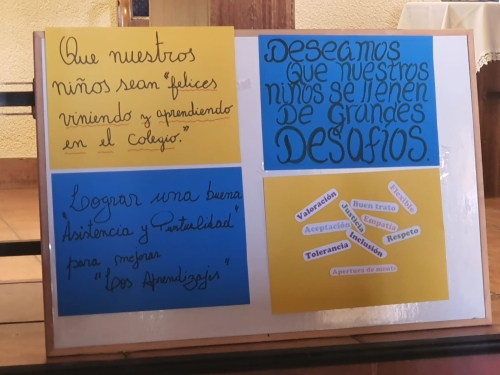 Que nuestros
niños sean "felices
viniendo y aprendiendo
en el colegio."
Deseamos
Que nuestros
niños se llenen
De Grandes
Desafíos
Lograr una buena
"Asistencia y Puntualidad"
para mejorar
"Los Aprendizajes"
Flexible
Valoración
Buen trato
Justicia
Empatía
Aceptación
Respeto
Inclusión
Tolerancia
Apertura de mente